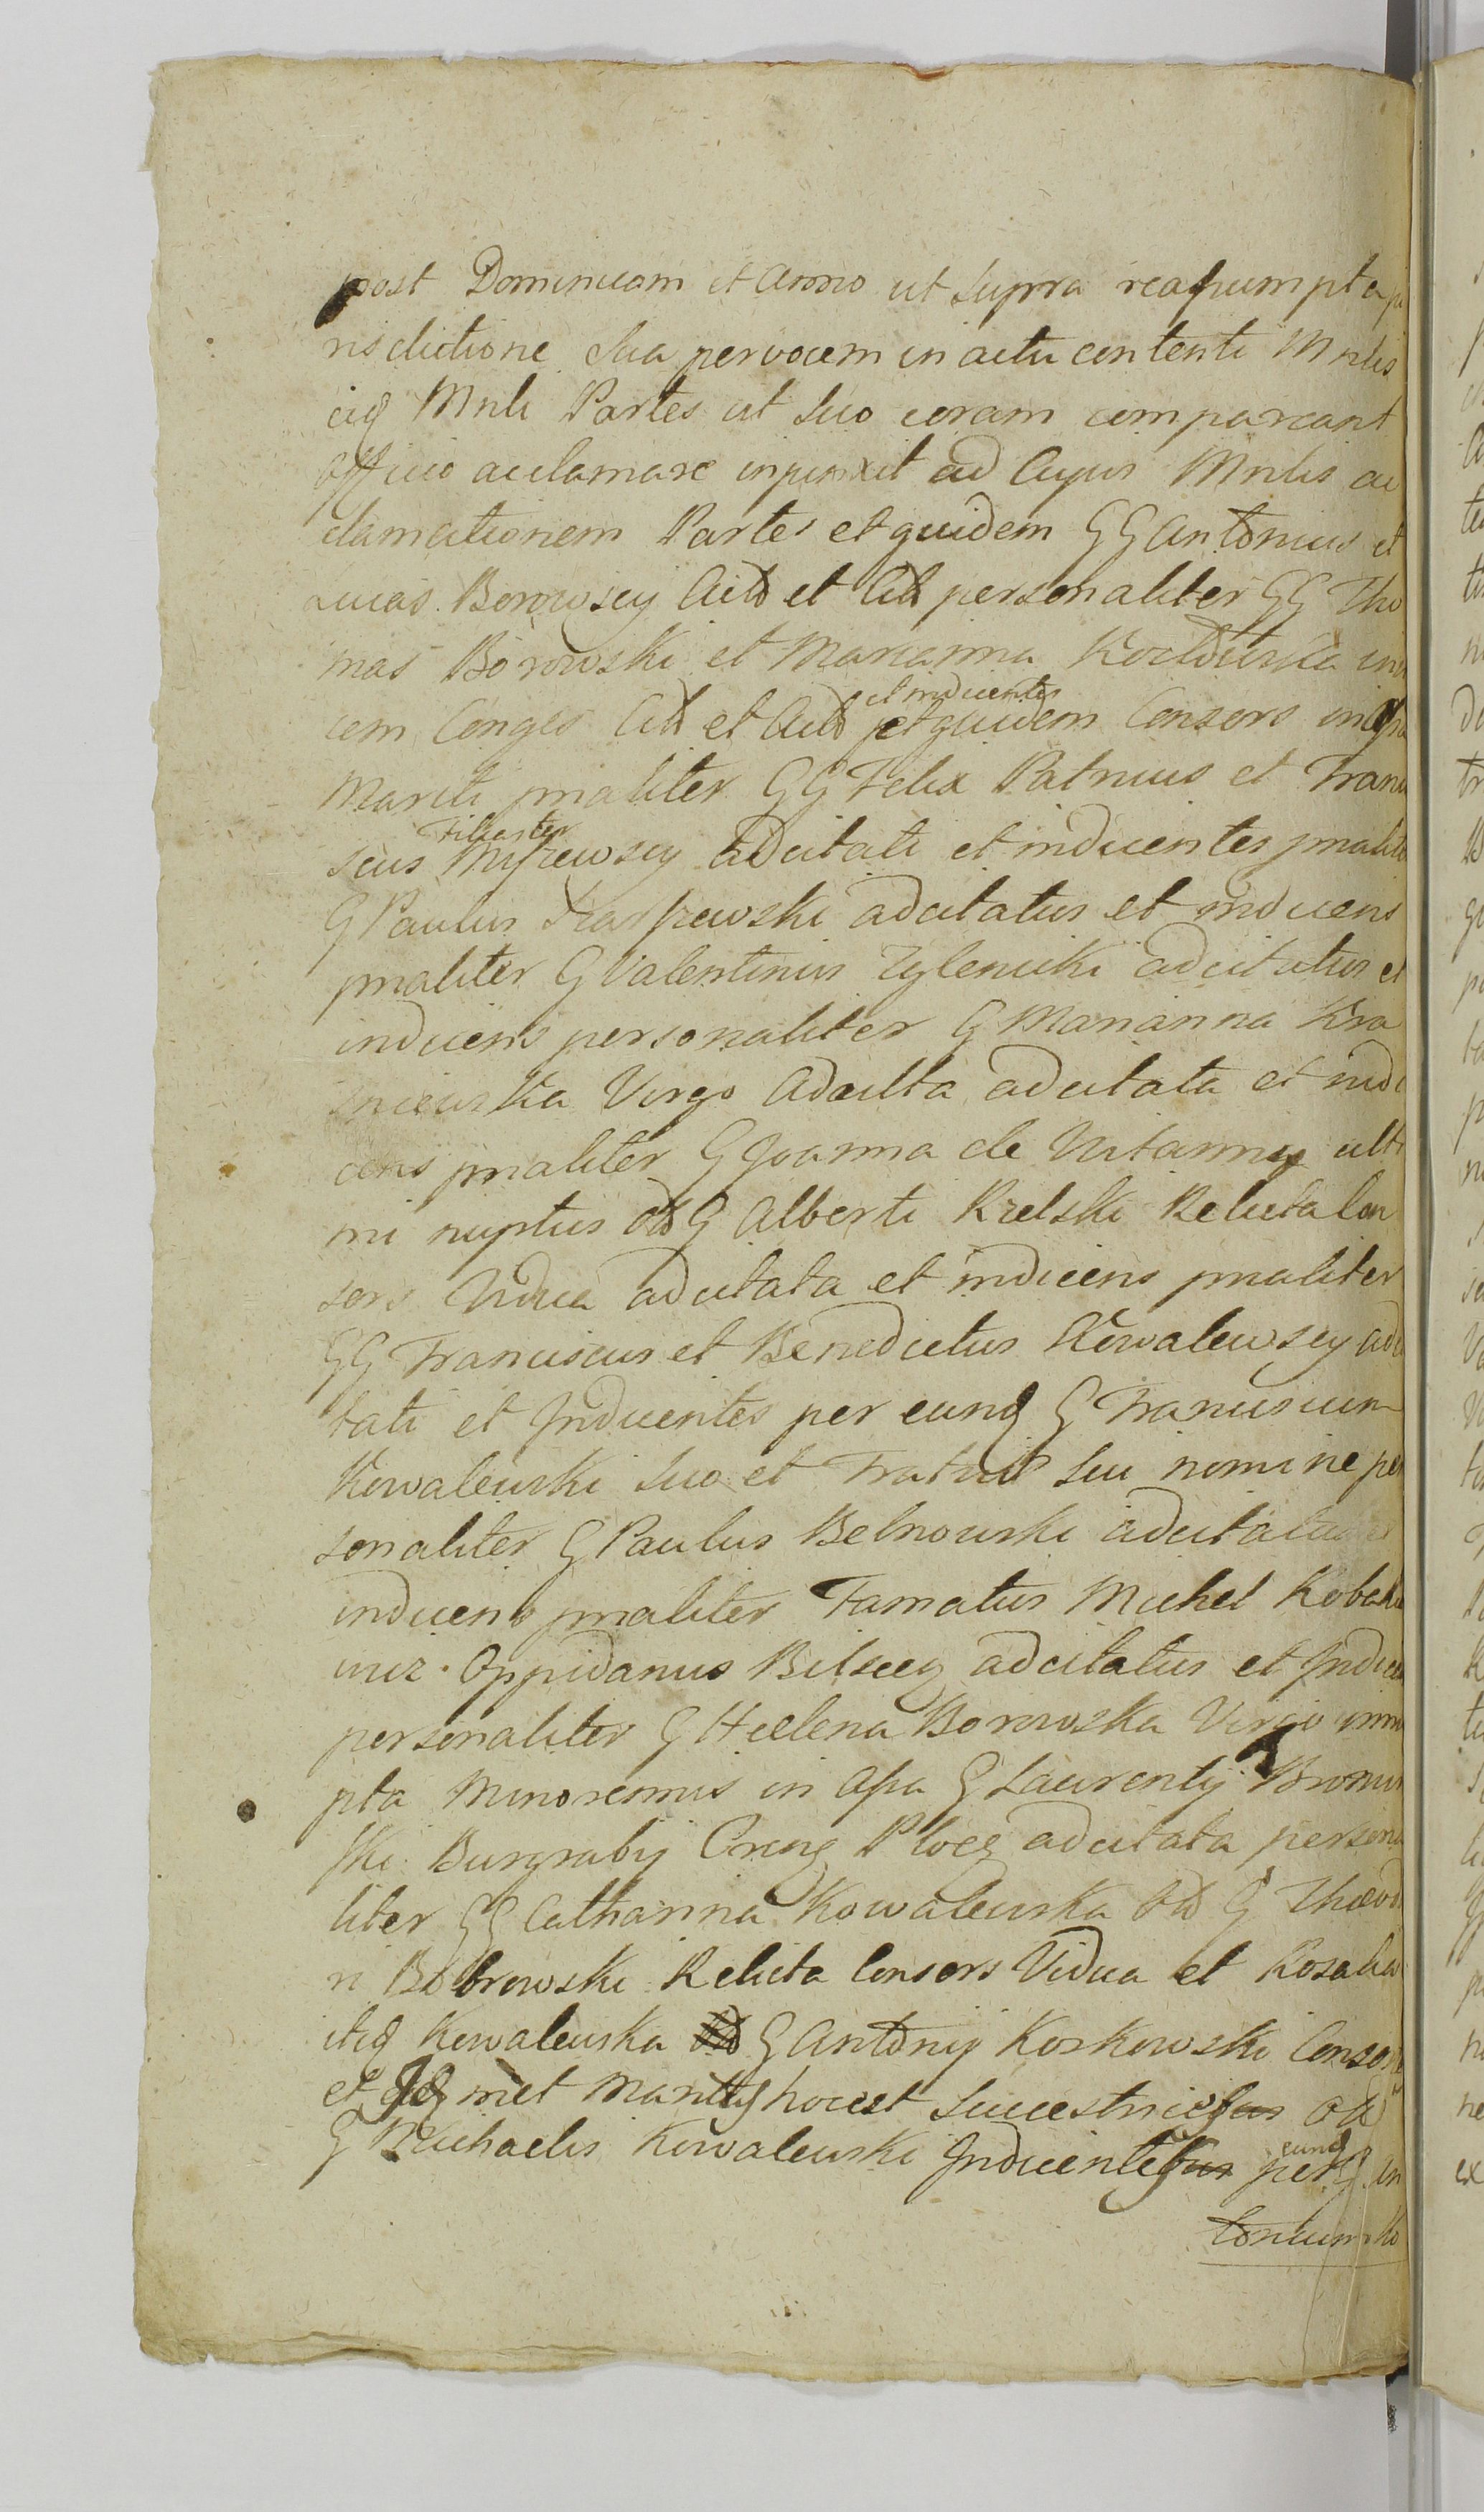 post Dominicam et Anno ut supra reassumpta ju
risdictione sua per vocem in actu contenti Mnlis
eiq Mnli Partes ut suo coram compareant
Officio acclamare injunxit ad Cujus Mnlis ac
clamationem Partes et quidem GG Antonius et
Lucas Borowscy Actõ et Citõ personaliter GG Tho
mas Borowski et Marianna invi
cem Conges Citõ et Actõ et inducentes et quidem Consors in Assa
Mariti pnaliter GG Felix Patruus et Franci
scus Filiaster Myszewscy adcitati et inducentes pnaliter
G Paulus adcitatus et inducens
pnaliter G Valentinus Zylenicki adcitatus et
inducens personaliter G Marianna Kra
sniewska Virgo Adulta adcitata et indu
cens pnaliter G Joanna de ulti
mi nuptus G Alberti Rzelski Relicta Con
sors Vidua adcitata et inducens pnaliter
GG Franciscus et Benedictus Kowalewscy adci
tati et Inducentes per eunq G Franciscum
Kowalewski suo et Fratris sui nomine per
sonaliter G Paulus Belnowski adcitatus
inducens pnaliter Famatus Michel
wicz. Oppidanus Bilscey adcitatus et Inducens
personaliter G Heelena Borowska Virgo innu
pta Minorennis in Assa G Laurentij Bromir
ski Burgrabij Creng Plocg adcitata persona
liter GG Catharina Kowalewska G Theodo
ri Bobrowski Relicta Consors Vidua et Rosalia
itiq Kowalewska G Antonij Koskowski Consors
et met Maritus hocest Succestrices
G Michaelis Kowalewski Inducentes per eunq G An
tonium Ko